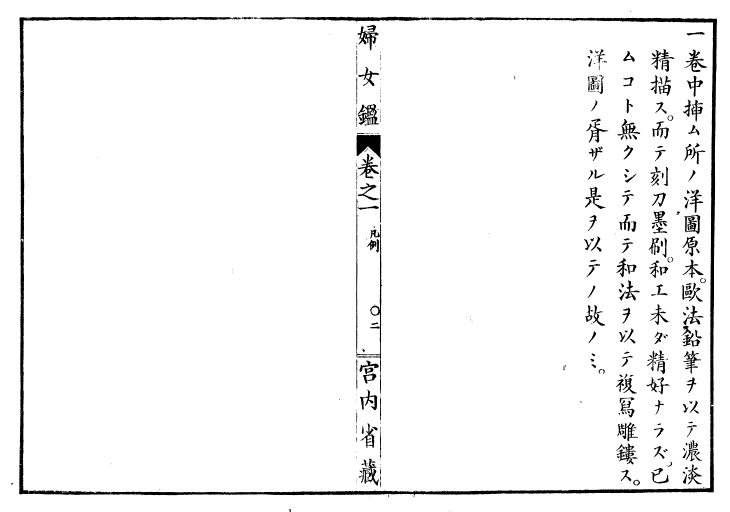 一卷中挿ム所ノ洋圖原本。歐法鉛筆ヲ以テ濃淡
精描ス。而テ刻刀墨刷。和工未ダ精好ナラズ。已
ムコト無クシテ而テ和法ヲ以テ複寫雕鏤ス。
洋圖ノ胥ザル是ヲ以テノ故ノミ。
婦女鑑 卷之一 凡例 〇二 宮内省藏